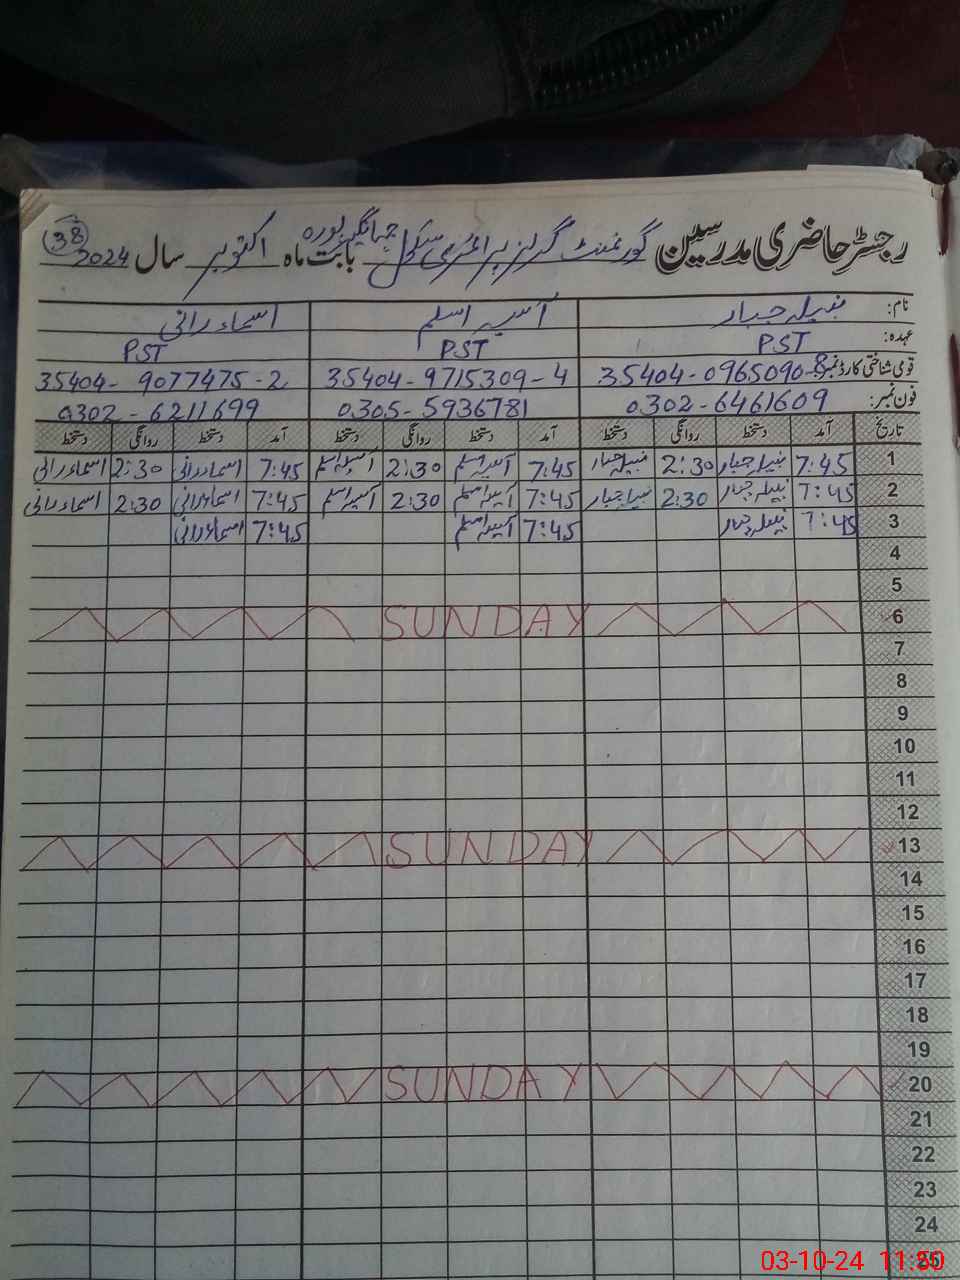 رجسٹر حاضری مدرسین گورنمنٹ گرلز پرائمری سکول جہانگیر پورہ بابت ماہ اکتوبر سال 2024
38
نام: نبیلہ جبار آسیہ اسلم اسماء رانی
عہدہ: PST PST PST
قومی شناختی کارڈ نمبر: 35404-0965090-8 35404-9715309-4 35404-9077475-2
فون نمبر: 0302-6461609 0305-5936781 0302-6211699
تاریخ آمد دستخط روانگی دستخط آمد دستخط روانگی دستخط آمد دستخط روانگی دستخط
1 7:45 نبیلہ جبار 2:30 نبیلہ جبار 7:45 آسیہ اسلم 2:30 آسیہ اسلم 7:45 اسماء رانی 2:30 اسماء رانی
2 7:45 نبیلہ جبار 2:30 نبیلہ جبار 7:45 آسیہ اسلم 2:30 آسیہ اسلم 7:45 اسماء رانی 2:30 اسماء رانی
3 7:45 نبیلہ جبار 7:45 آسیہ اسلم 7:45 اسماء رانی
4
5
6 SUNDAY
7
8
9
10
11
12
13 SUNDAY
14
15
16
17
18
19
20 SUNDAY
21
22
23
24
25
03-10-24